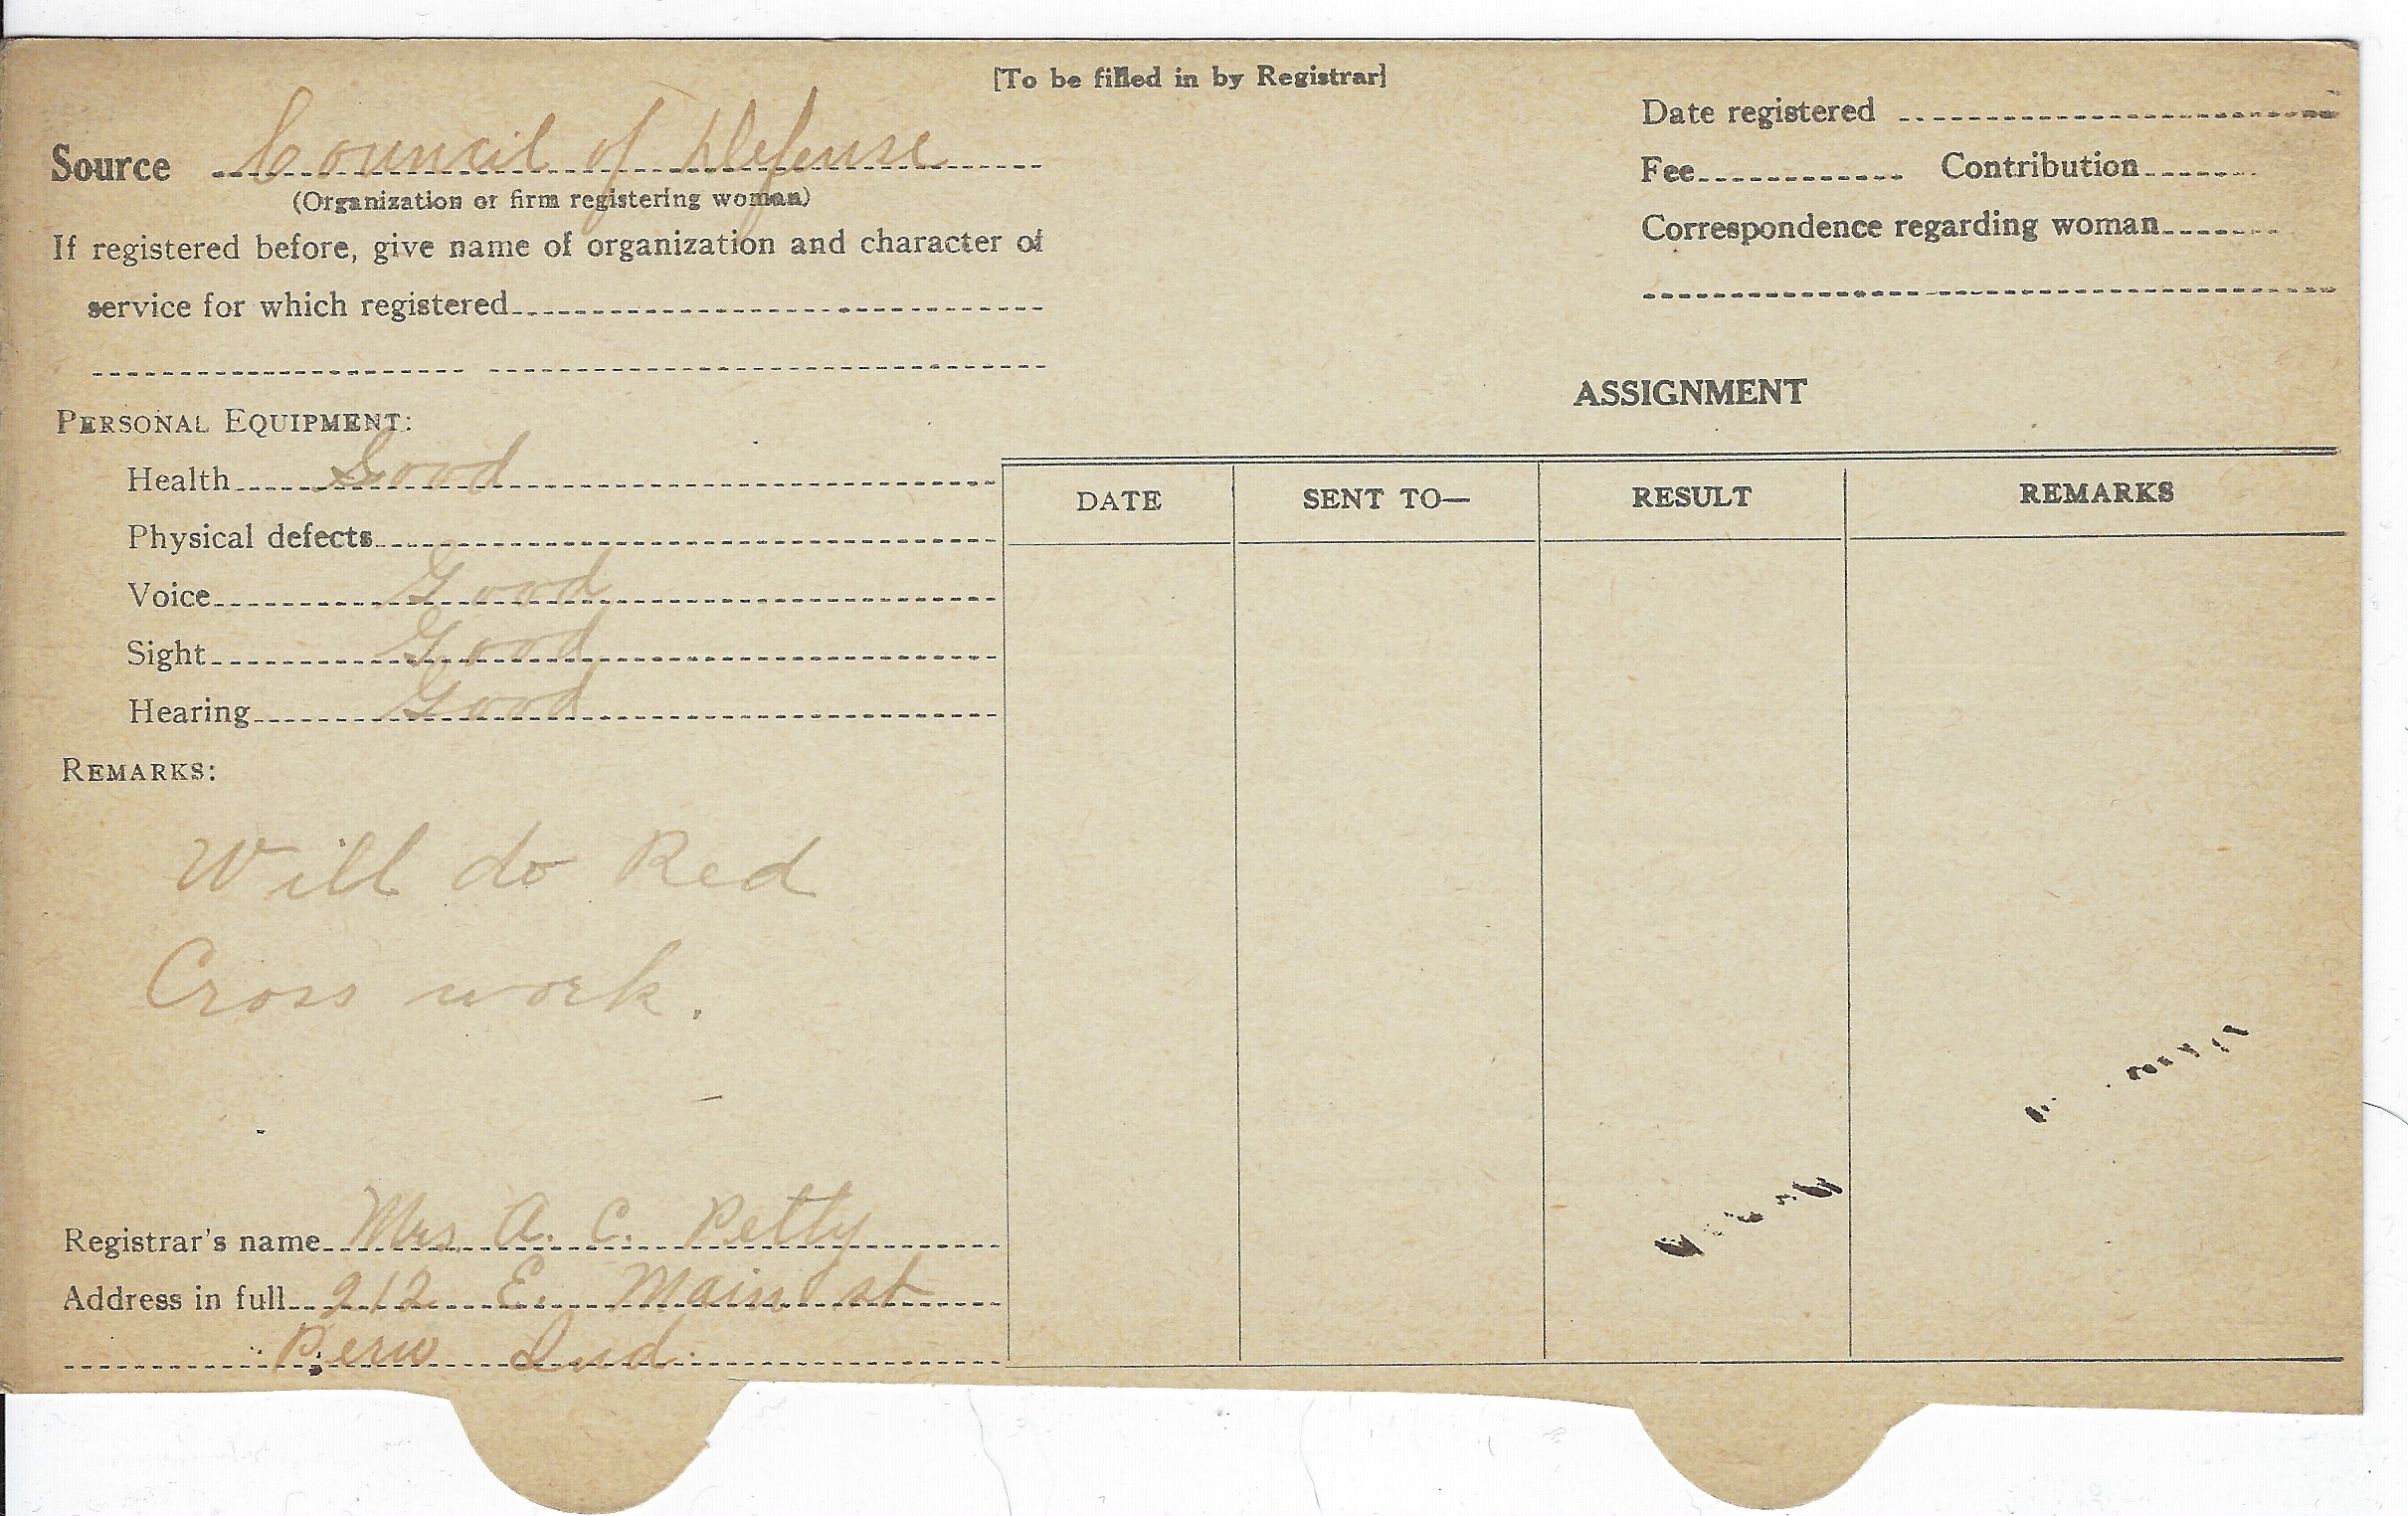 [To be filled in by Registrar]
Source Council of Defense
(Organization or firm registering woman)
If registered before, give name of organization and character of
service for which registered
Date registered
Fee Contribution
Correspondence regarding woman
PERSONAL EQUIPMENT:
Health Good
Physical defects
Voice Good
Sight Good
Hearing Good
REMARKS:
Will do Red
Cross work.
Registrar's name Mrs A. C. Petty
Address in full 212 E. Main st
Peru Ind.
ASSIGNMENT
DATE SENT TO— RESULT REMARKS